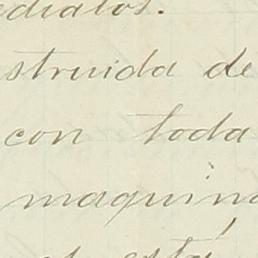 ediatos.
struida de
con toda
maquina
está